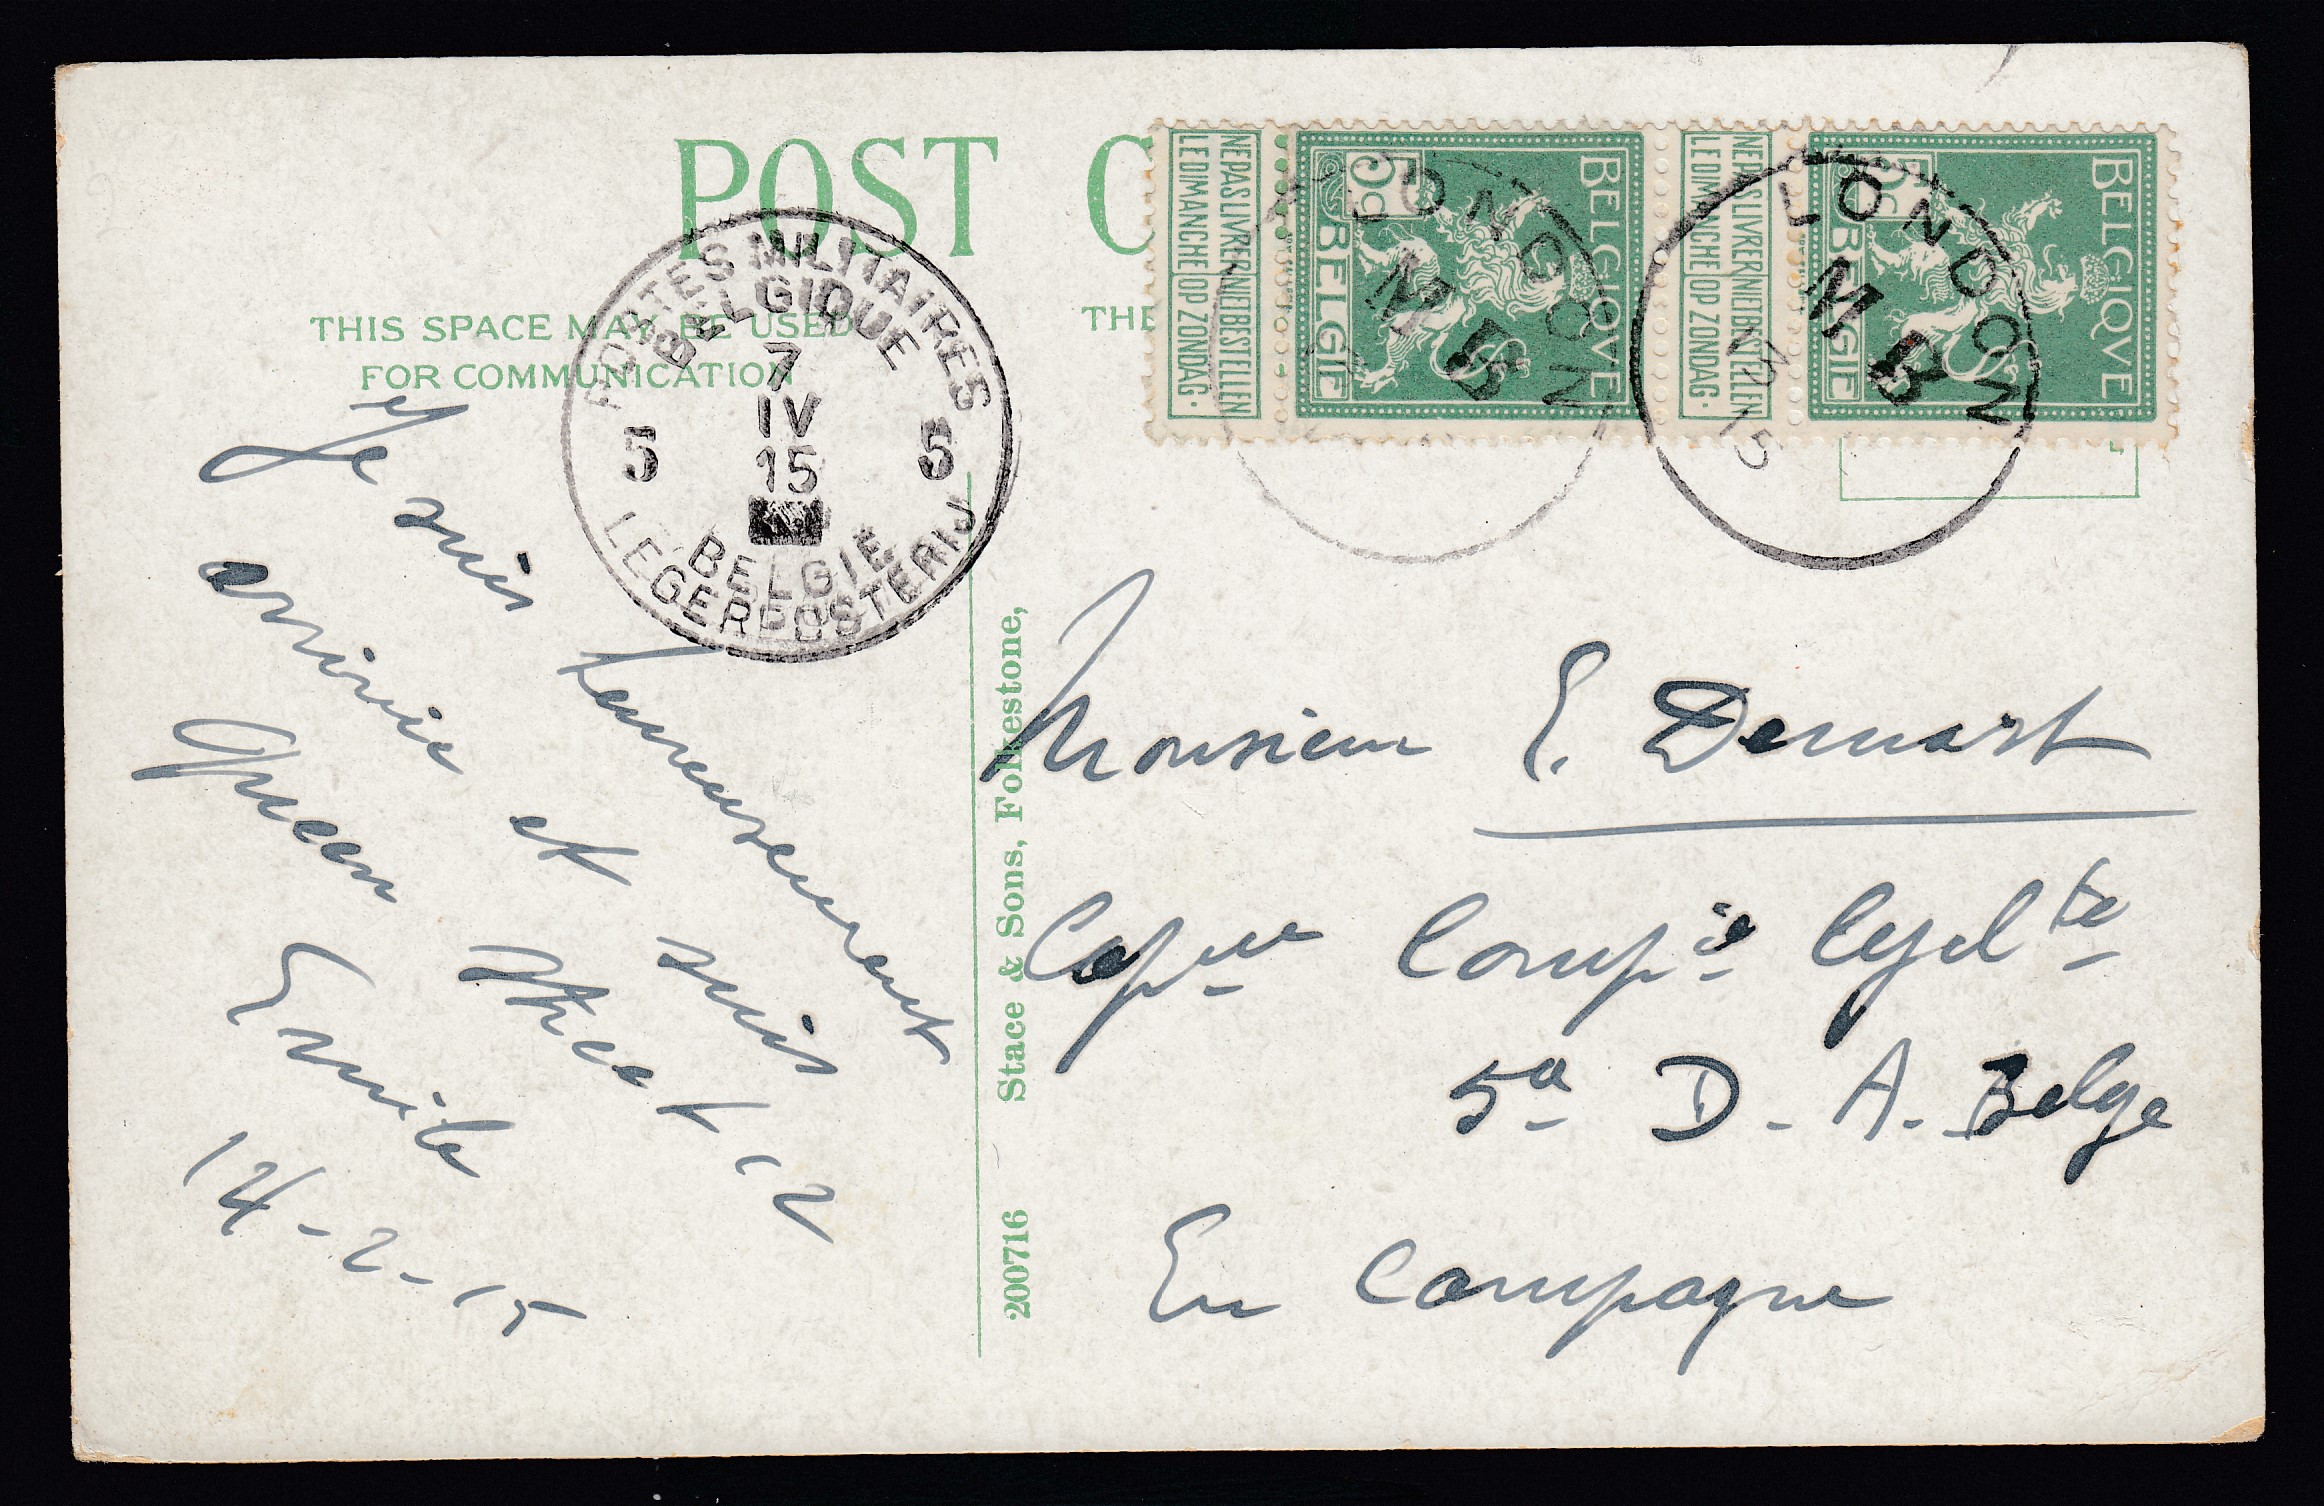 POST C
THIS SPACE MAY BE USED
FOR COMMUNICATION
THE
POSTES MILITAIRES
BELGIQUE
7
IV
15
5 5
BELGIE
LEGERPOSTERIJ
NE PAS LIVRER NIET BESTELLEN
LE DIMANCHE OP ZONDAG.
BELGIQUE
5c
BELGIË
LONDON
M B
NE PAS LIVRER NIET BESTELLEN
LE DIMANCHE OP ZONDAG.
BELGIQUE
5c
BELGIË
LONDON
M B
15
Je suis heureusement
arrivée et suis
Emile
14-2-15
Stace & Sons, Folkestone,
200716
Monsieur E. Demart
Compie Cyclte
5a D. A. Belge
En Campagne